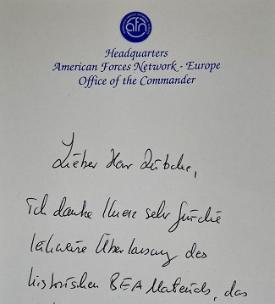 afn
Headquarters
American Forces Network - Europe
Office of the Commander
Lieber Herr
ich danke Ihnen sehr für die
leihweise Überlassung des
historischen BFA Materials, das